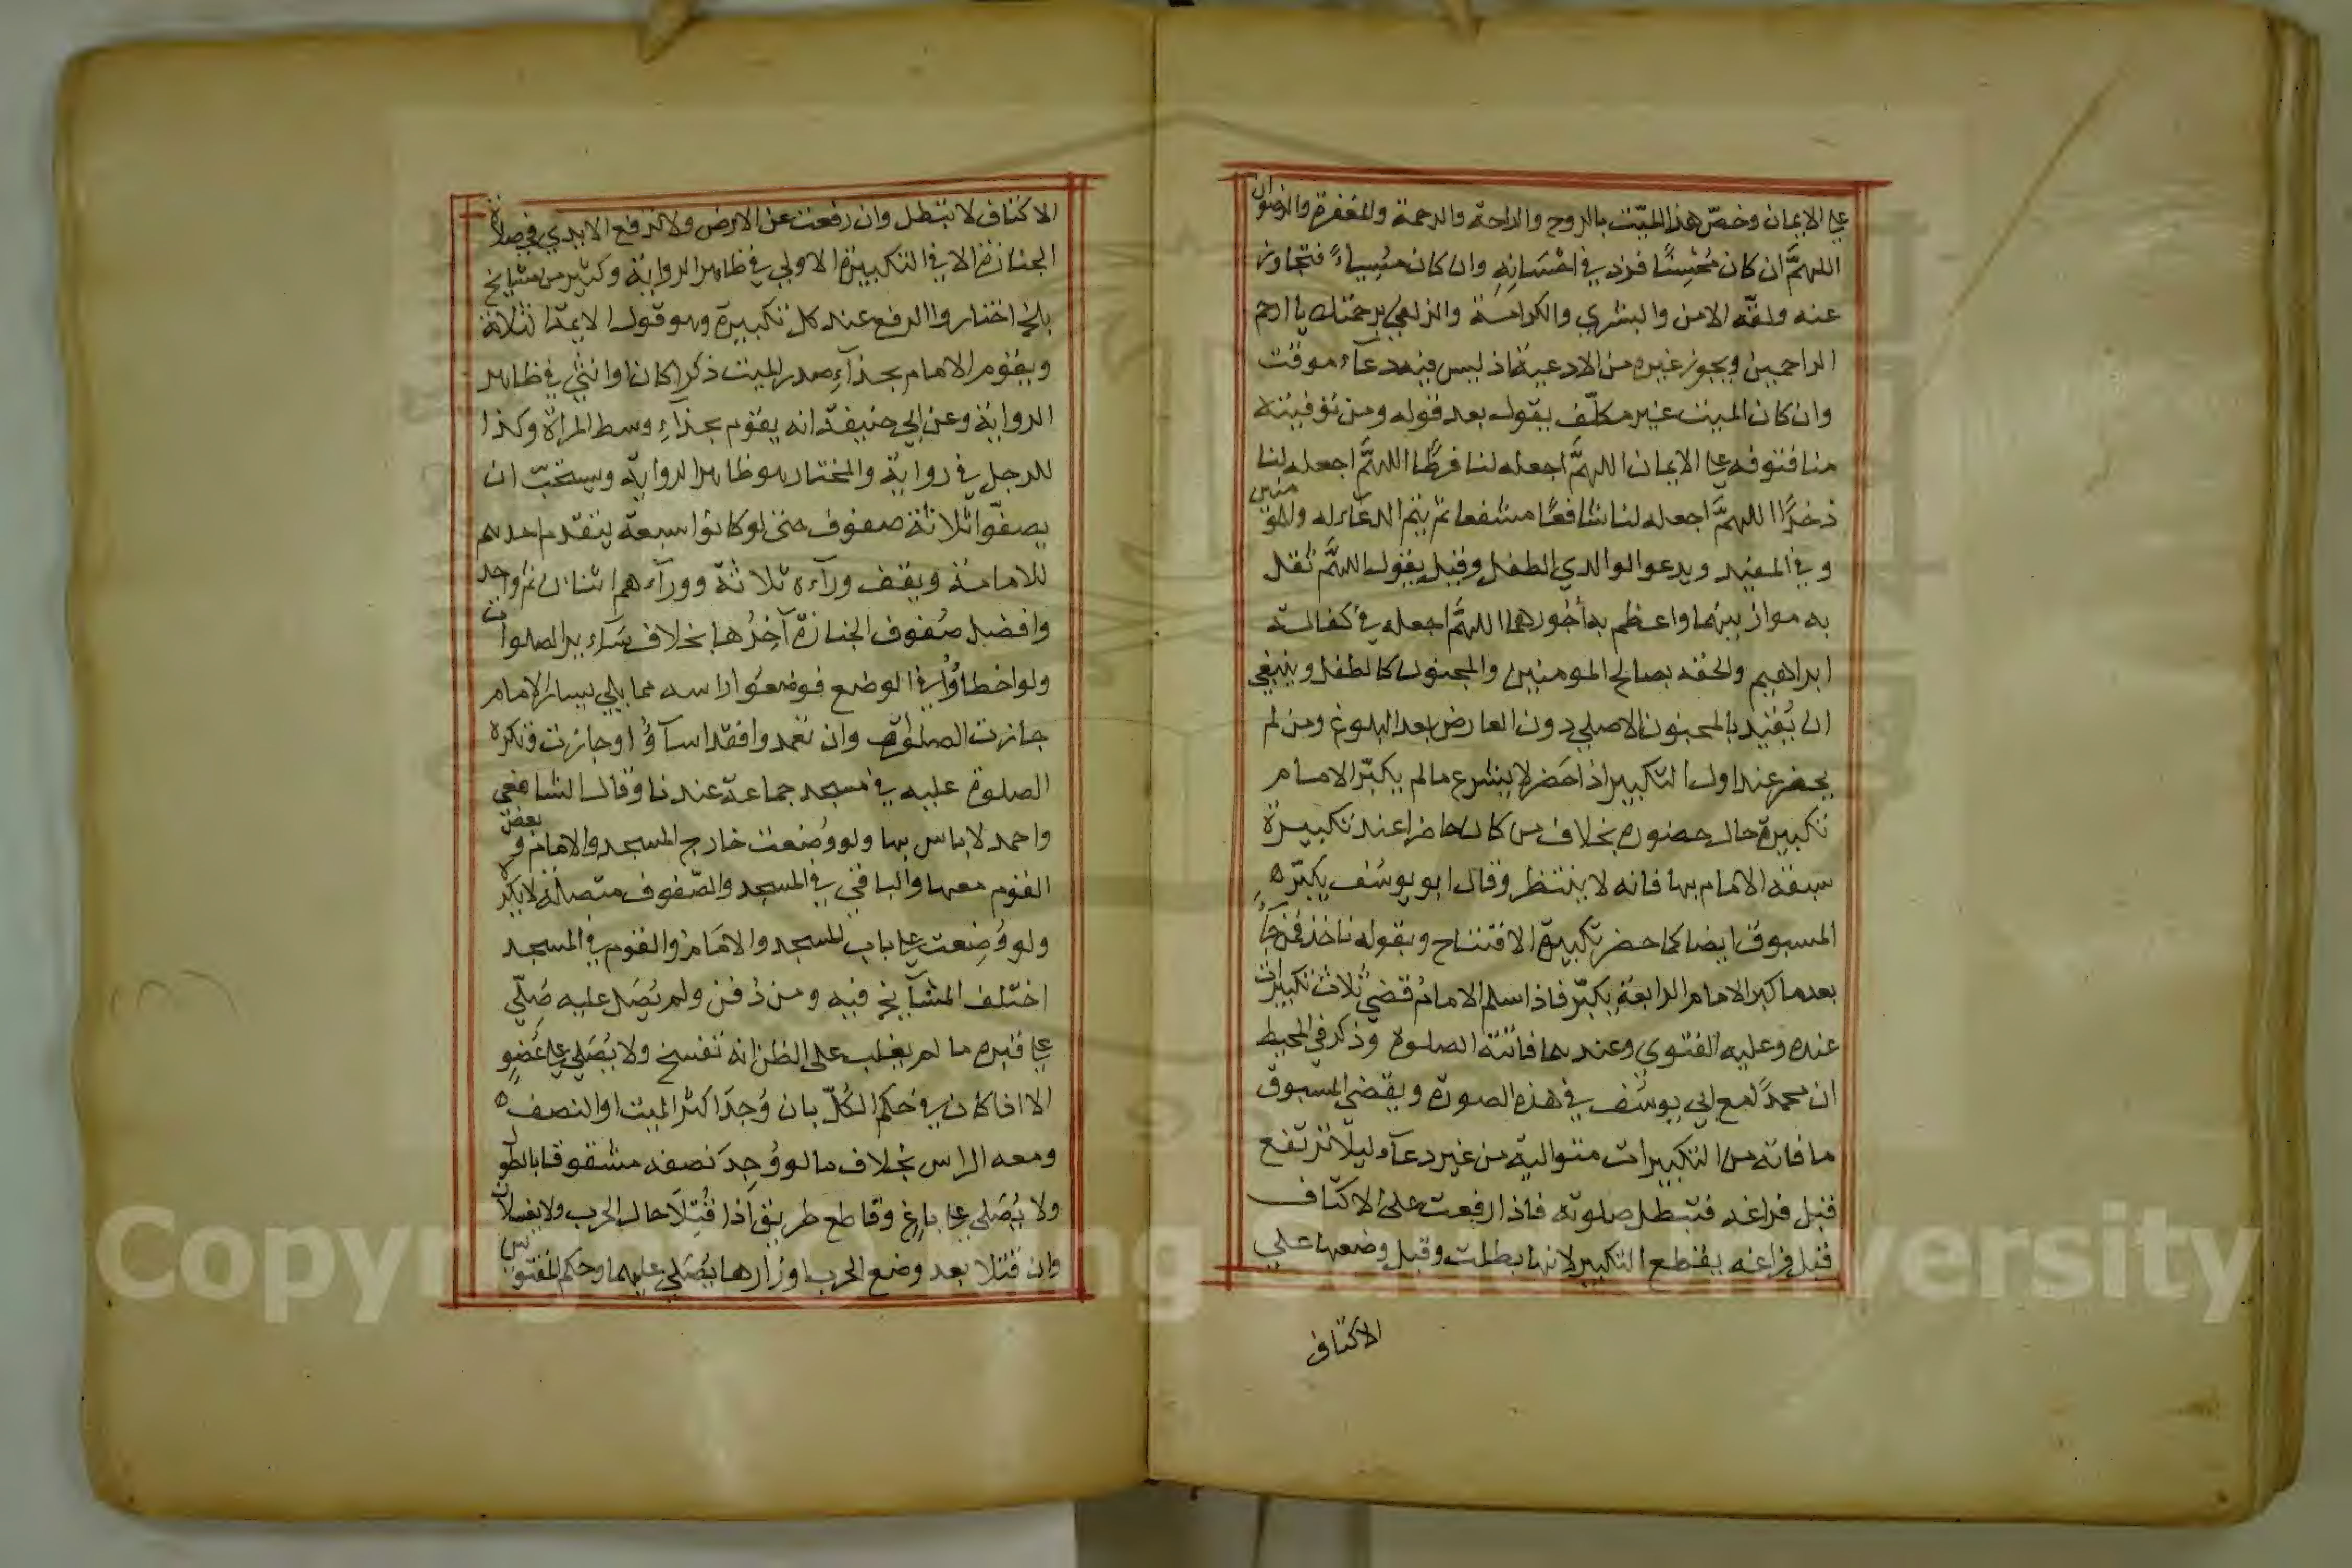 على الايمان وخصّ هذا الميّت بالروح والراحة والرحمة والمغفرة والرضوان
اللهمَّ ان كان مُحْسِنًا فزد في احْسَانِهِ وان كان مُسِياءً فتجاوز
عنه ولقّه الامن والبشري والكرامة والزلفي برحمتك يا ارحم
الراحمين ويجوز غيره من الادعية اذ ليس فيه دعآء موقت
وان كان الميت غير مكلّف يقول بعد قوله ومن توفيته
منا فتوفه على الايمان اللهمَّ اجعله لنا فرطًا اللهمَّ اجعله لنا
ذخرًا اللهمَّ اجعله لنا شافعًا مشفعا ثم يتم الدعآء له وللمومنين
وفي المفيد ويدعوا لوالدي الطفل وقيل يقول اللهمَّ ثقل
به موازينهما واعظم به اُجُورهما اللهمَّ اجعله في كفالة
ابراهيم والحقه بصالح المومنين والمجنون كالطفل وينبغي
ان يُقيد بالمجنون الاصلي دون العارض بعد البلوغ ومن لم
يحضر عند اول التكبير اذا حَضر لا يشرع مالم يكبّر الامام
تكبيرة حال حضوره بخلاف من كان حاضرا عند تكبيرة
سبقه الامام بها فانه لا ينتظر وقال ابو يوسُف يكبّر ه
المسبوق ايضا كما حضر تكبيرة الافتتاح وبقوله ناخذ فمن جآءَ
بعد ما كبر الامام الرابعة يكبّر فاذا سلم الامام قضي ثلاث تكبيرات
عنده وعليه الفتوي وعندهما فاتته الصلوة وذكر في المحيط
ان محمدًا مع ابي يوسُف في هذه الصورة ويقضي المسبوق
ما فاته من التكبيرات متوالية من غير دعآء ليلّا ترتفع
قبل فراغه فتبطل صلوته فاذا رفعت على الاكتاف
قبل فراغه يقطع التكبير لانها بطلت وقبل وضعها علي
الاكتاف
الاكتاف لا تبطل وان رفعت عن الارض ولا ترفع الايدي في صلاة
الجنازة الا في التكبيرة الاولي في ظاهر الرواية وكثير من مشايخ
بلخ اختاروا الرفع عند كل تكبيرة وهو قول الايمة الثلاثة
ويقوم الامام بحذآءِ صدر الميت ذكرا كان او انثي في ظاهر
الرواية وعن ابي حنيفة انه يقوم بحذآءِ وسط المراة وكذا
للرجل في رواية والمختار هو ظاهر الرواية ويستحبّ ان
يصفّوا ثلاثة صفوف حتى لو كانوا سبعة يتقدم احدهم
للامامة ويقف ورآءه ثلاثة وورآءهم اثنان ثم واحد
وافضل صُفوف الجنازة آخِرُها بخلاف سَآئر الصلوات
ولو اخطاؤا في الوضع فوضعُوا راسه مما يلي يسار الامام
جازت الصلوة وان تعمدوا فقد اسآؤُا وجازت وتكره
الصلوة عليه في مسجد جماعة عندنا وقال الشافعي
واحمد لا باس بها ولو وُضعت خارج المسجد والامام وبعض
القوم معها والباقي في المسجد والصّفوف متصلة لا يكره
ولو وُضِعت على باب المسجد والامَام والقوم في المسجد
اختلف المشآيخ فيه ومن دُفن ولم يُصَل عليه صُلّي
على قبره ما لم يغلب على الظن انه تفسخ ولا يُصَلي على عُضوٍ
الا اذا كان في حُكم الكُلّ بان وُجدَ اكثر الميت او النصف ه
ومعه الراس بخلاف ما لو وُجِدَ نصفه مشقوقا بالطول
ولا يُصَلي على باغ وقاطع طريق اذا قُتِلَا حال الحرب ولا يغسلان
وان قُتلا بعد وضع الحرب اوزارها يُصَلي عليهما وحكم المقتولين
Copyright © King Saud University